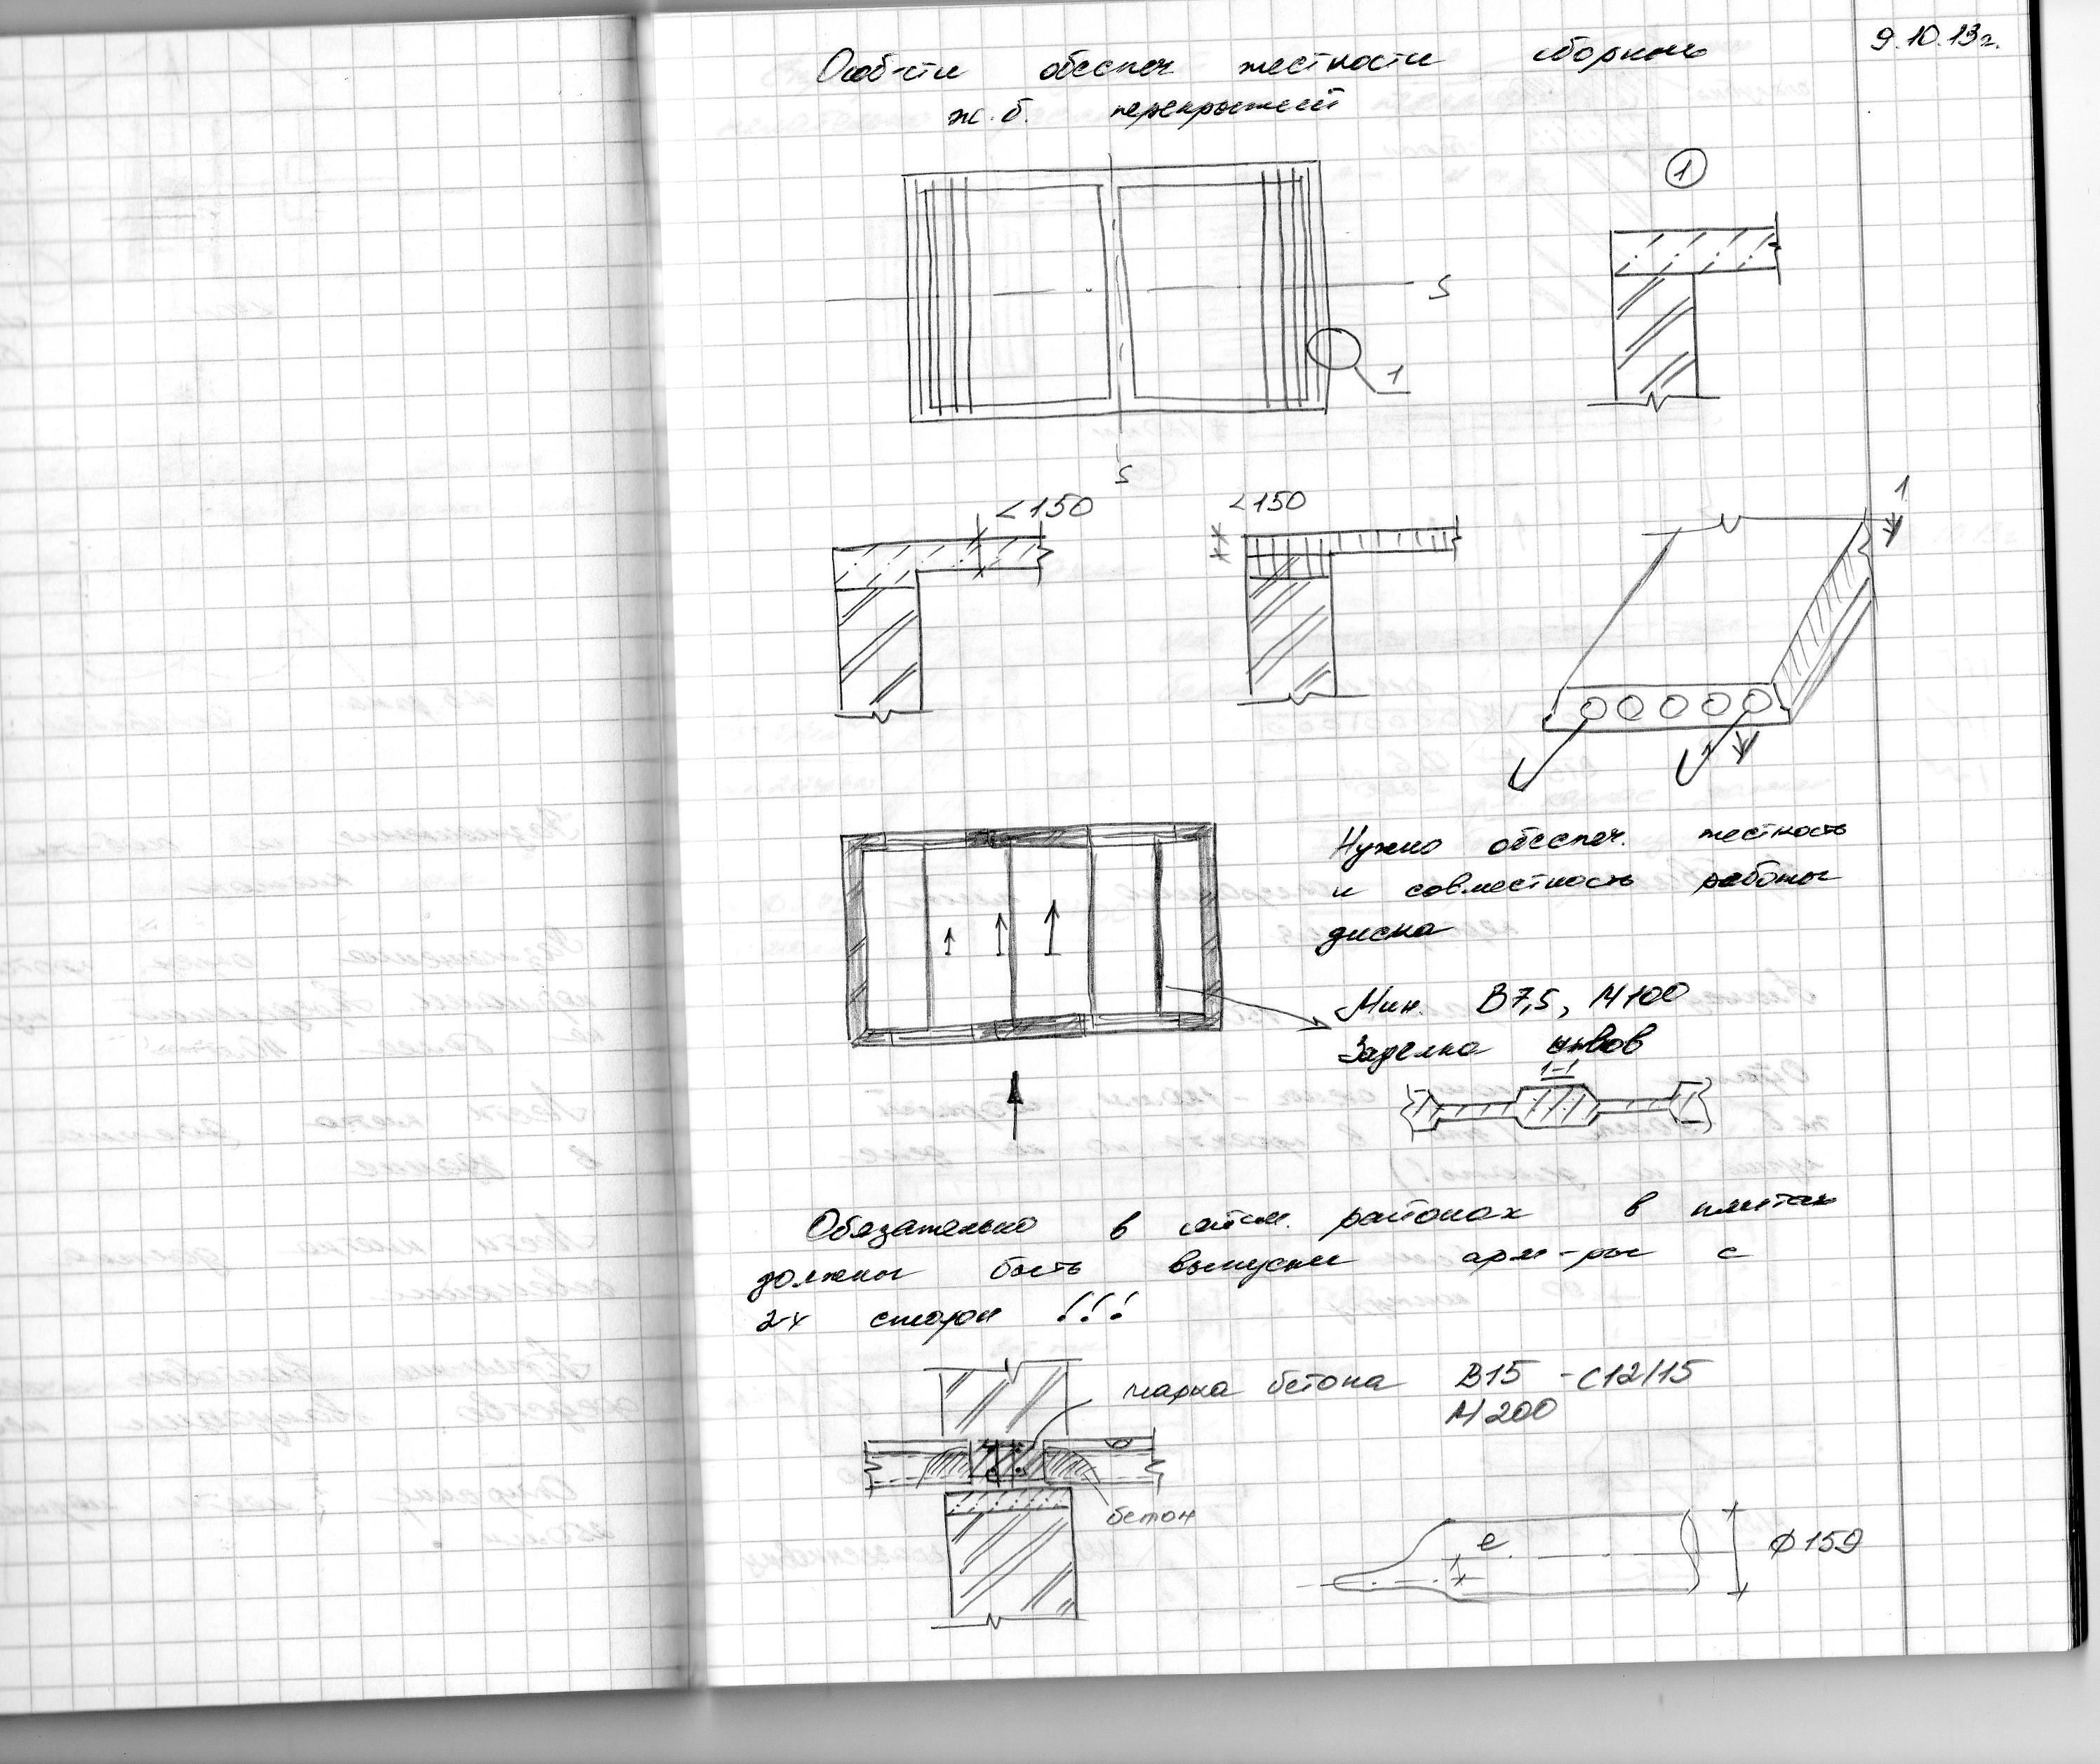 9.10.13г.
Особ-сти обеспеч жесткости сборных
ж.б. перекрытий
1
S
1
S
<150
<150
1
1
Нужно обеспеч. жесткость
и совместность работы
диска
Мин. В7,5, М100
Заделка швов
1-1
Обязательно в сейсм. районах в плитах
должны быть выпуски арм-ры с
2-х сторон !!!
марка бетона В15 - С12/15
М200
бетон
e
Ф159